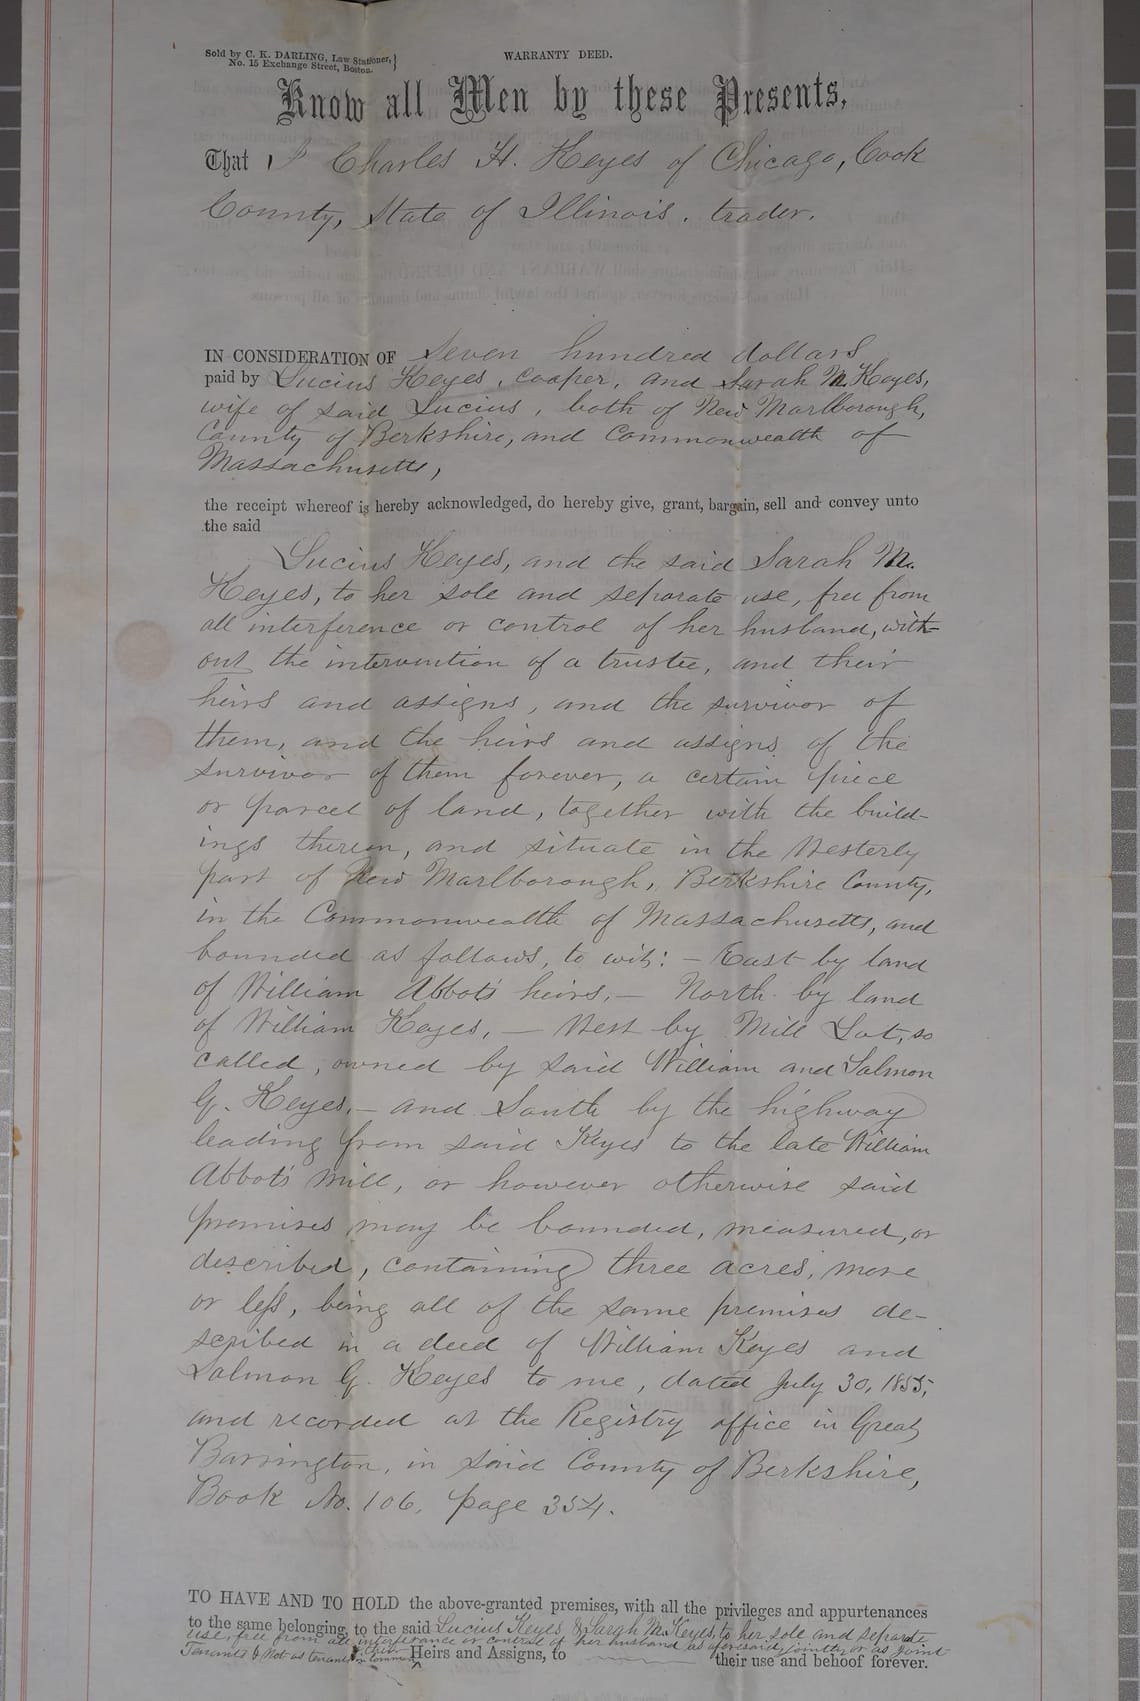 Sold by C. K. DARLING, Law Stationer,}
No. 15 Exchange Street, Boston.
WARRANTY DEED.
Know all Men by these Presents,
That I Charles H. Keyes of Chicago, Cook
County, State of Illinois, trader.
IN CONSIDERATION OF Seven hundred dollars
paid by Lucius Keyes, cooper, and Sarah M. Keyes,
wife of said Lucius, both of New Marlborough,
County of Berkshire, and Commonwealth of
Massachusetts,
the receipt whereof is hereby acknowledged, do hereby give, grant, bargain, sell and convey unto
the said
Lucius Keyes, and the said Sarah M.
Keyes, to her sole and separate use, free from
all interference or control of her husband, with-
out the intervention of a trustee, and their
heirs and assigns, and the survivor of
them, and the heirs and assigns of the
survivor of them forever, a certain piece
or parcel of land, together with the build-
ings thereon, and situate in the Westerly
part of New Marlborough, Berkshire County,
in the Commonwealth of Massachusetts, and
bounded as follows, to wit: - East by land
of William Abbot's heirs, - North by land
of William Keyes, - West by Mill Lot, so
called, owned by said William and Salmon
G. Keyes, - and South by the highway
leading from said Keyes to the late William
Abbot's mill, or however otherwise said
premises may be bounded, measured, or
described, containing three acres, more
or less, being all of the same premises de-
scribed in a deed of William Keyes and
Salmon G. Keyes to me, dated July 30, 1855,
and recorded at the Registry office in Great
Barrington, in said County of Berkshire,
Book No. 106, page 354.
TO HAVE AND TO HOLD the above-granted premises, with all the privileges and appurtenances
to the same belonging, to the said Lucius Keyes & Sarah M. Keyes, to her sole and separate
use, free from all interference or control of her husband as aforesaid, jointly or as joint
Tenants & not as tenants in common, their Heirs and Assigns, to their use and behoof forever.